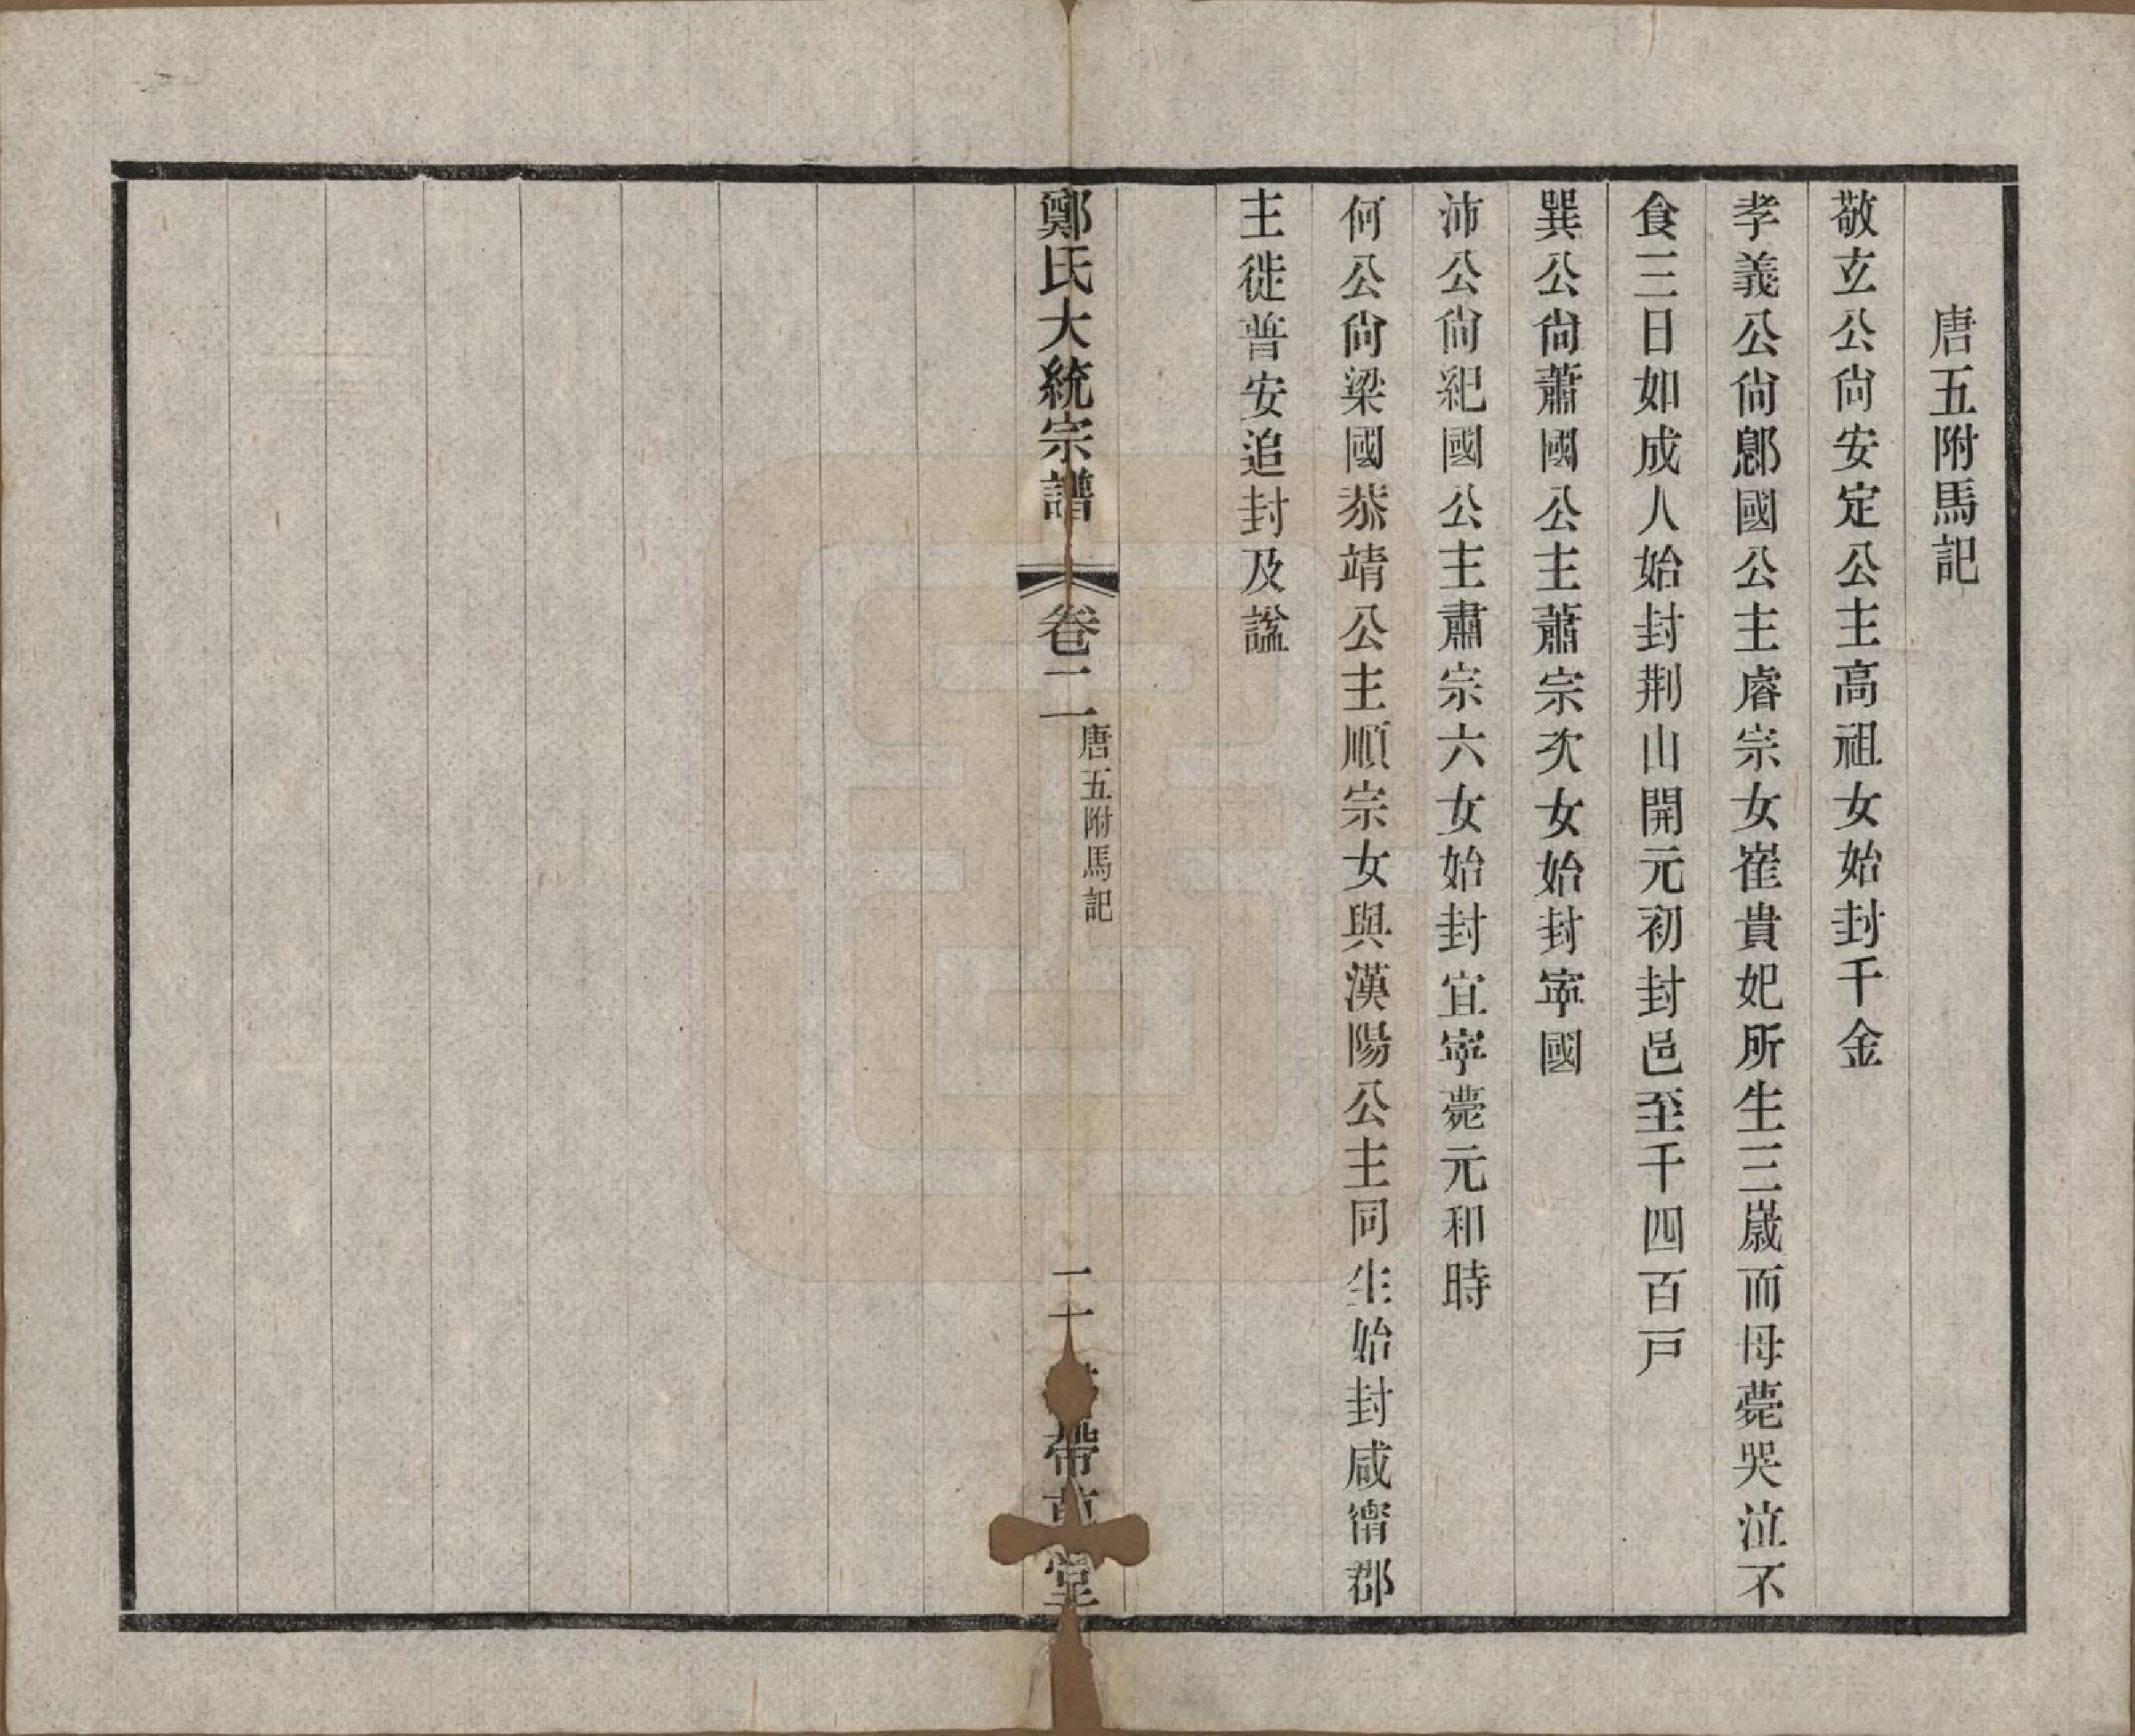 唐五附馬記
敬玄公尙安定公主高祖女始封千金
孝義公尙鄎國公主睿宗女崔貴妃所生三歲而母薨哭泣不
食三日如成人始封荆山開元初封邑至千四百戸
巽公尙蕭國公主蕭宗次女始封寧國
沛公尙紀國公主肅宗六女始封宜寧薨元和時
何公尙梁國恭靖公主順宗女與漢陽公主同生始封咸甯郡
主徙普安追封及諡
鄭氏大統宗譜
卷二
唐五附馬記
帶
堂